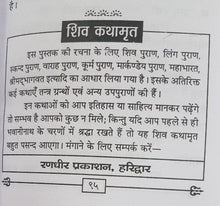 है।
शिव कथामृत
इस पुस्तक की रचना के लिए शिव पुराण, लिंग पुराण,
स्कन्द पुराण, वाराह पुराण, कूर्म पुराण, मार्कण्डेय पुराण, महाभारत,
श्रीमद्भागवत इत्यादि का आधार लिया गया है। इसके अतिरिक्त
कई कथाएँ तन्त्र ग्रन्थों एवं अन्य उपपुराणों की हैं।
इन कथाओं को आप इतिहास या साहित्य मानकर पढ़ेंगे
तो सम्भव है आपको कुछ न मिले; किन्तु यदि आप पहले से ही
भवानीनाथ के चरणों में श्रद्धा रखते हैं तो यह शिव कथामृत
बहुत पसन्द आएगा। मंगाने के लिए सम्पर्क करें—
रणधीर प्रकाशन, हरिद्वार
९५